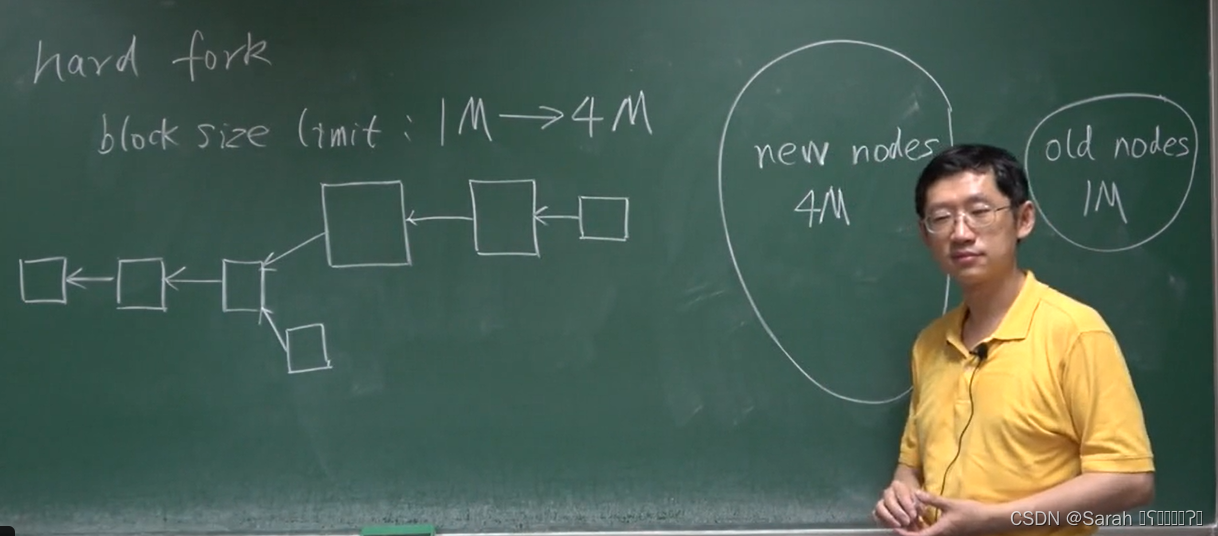 hard fork
block size limit : 1M → 4M
new nodes
4M
old nodes
1M
CSDN @Sarah